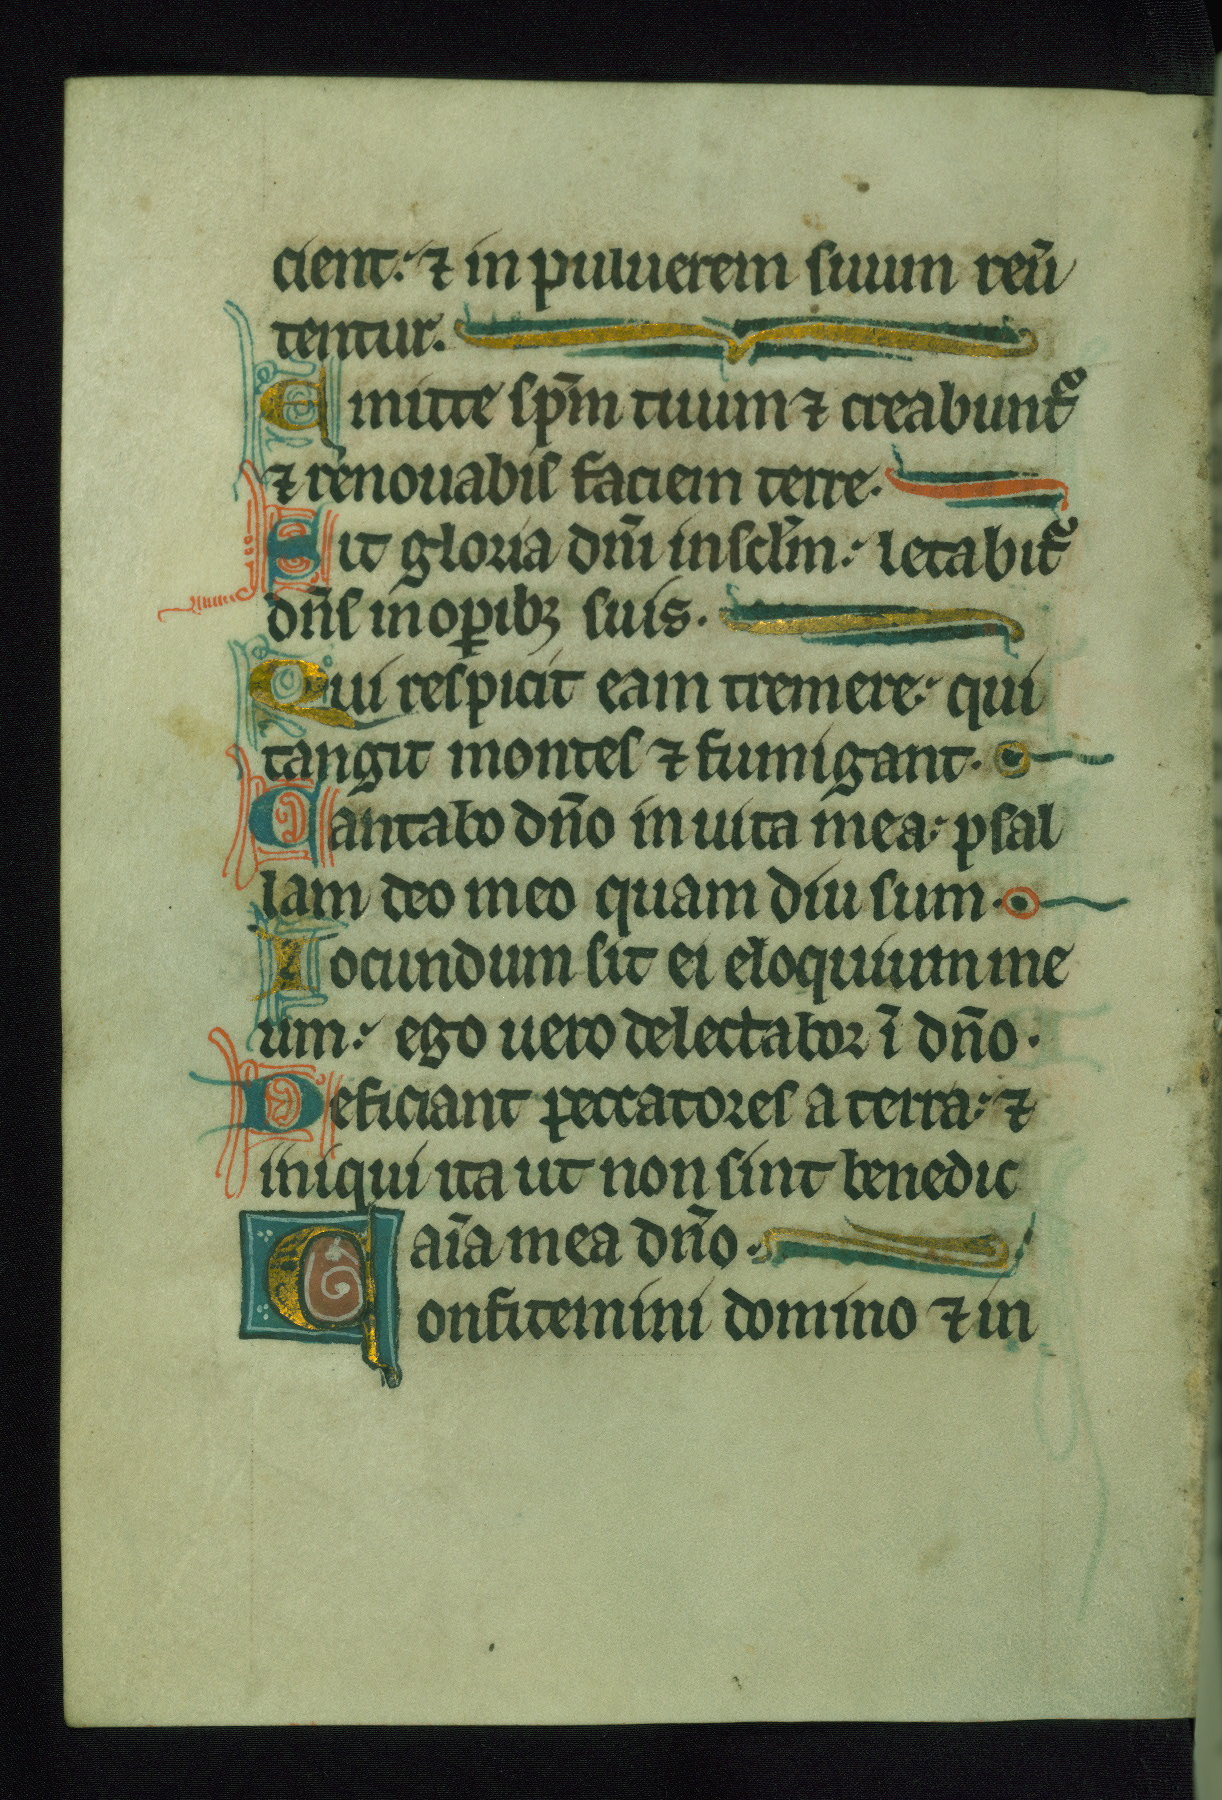 cient. ⁊ in puluerem suum reũ
tentur.
Emitte sp̃m tuum ⁊ creabunt᷑
⁊ renouabis faciem terre.
Sit gloria dñi in sclm̃. letabit᷑
dñs in oꝑibꝫ suis.
Qui respicit eam tremere. qui
tangit montes ⁊ fumigant.
Cantabo dño in uita mea. psal
lam deo meo quam diu sum.
Iocundum sit ei eloquium me
um. ego uero delectabor ĩ dño.
Deficiant peccatores a terra. ⁊
iniqui ita ut non sint benedic
aĩa mea dño.
Confitemini domino ⁊ in